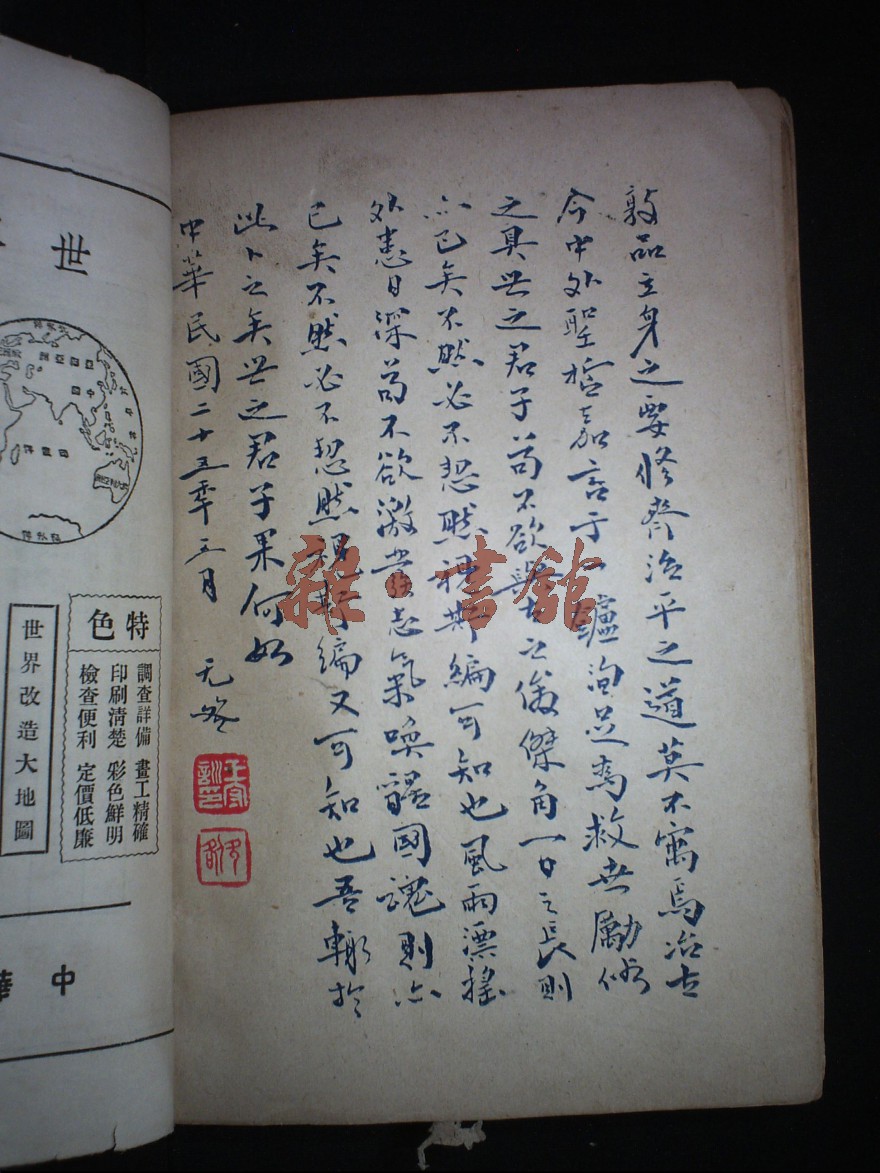 敦品立身之要修齊治平之道莫不寓焉冶古
今中外聖哲嘉言于一鑪洵足為救世勵俗
之具世之君子苟不欲與古之俊傑角一日之長則
亦已矣不然必不恝然視斯編可知也風雨漂搖
外患日深苟不欲激發志氣喚醒國魂則亦
已矣不然必不恝然視斯編又可知也吾輙於
此卜之矣世之君子果何如
中華民國二十五年三月 无
雜·書館
世
特色
調查詳備 畫工精確
印刷清楚 彩色鮮明
檢查便利 定價低廉
世界改造大地圖
中華